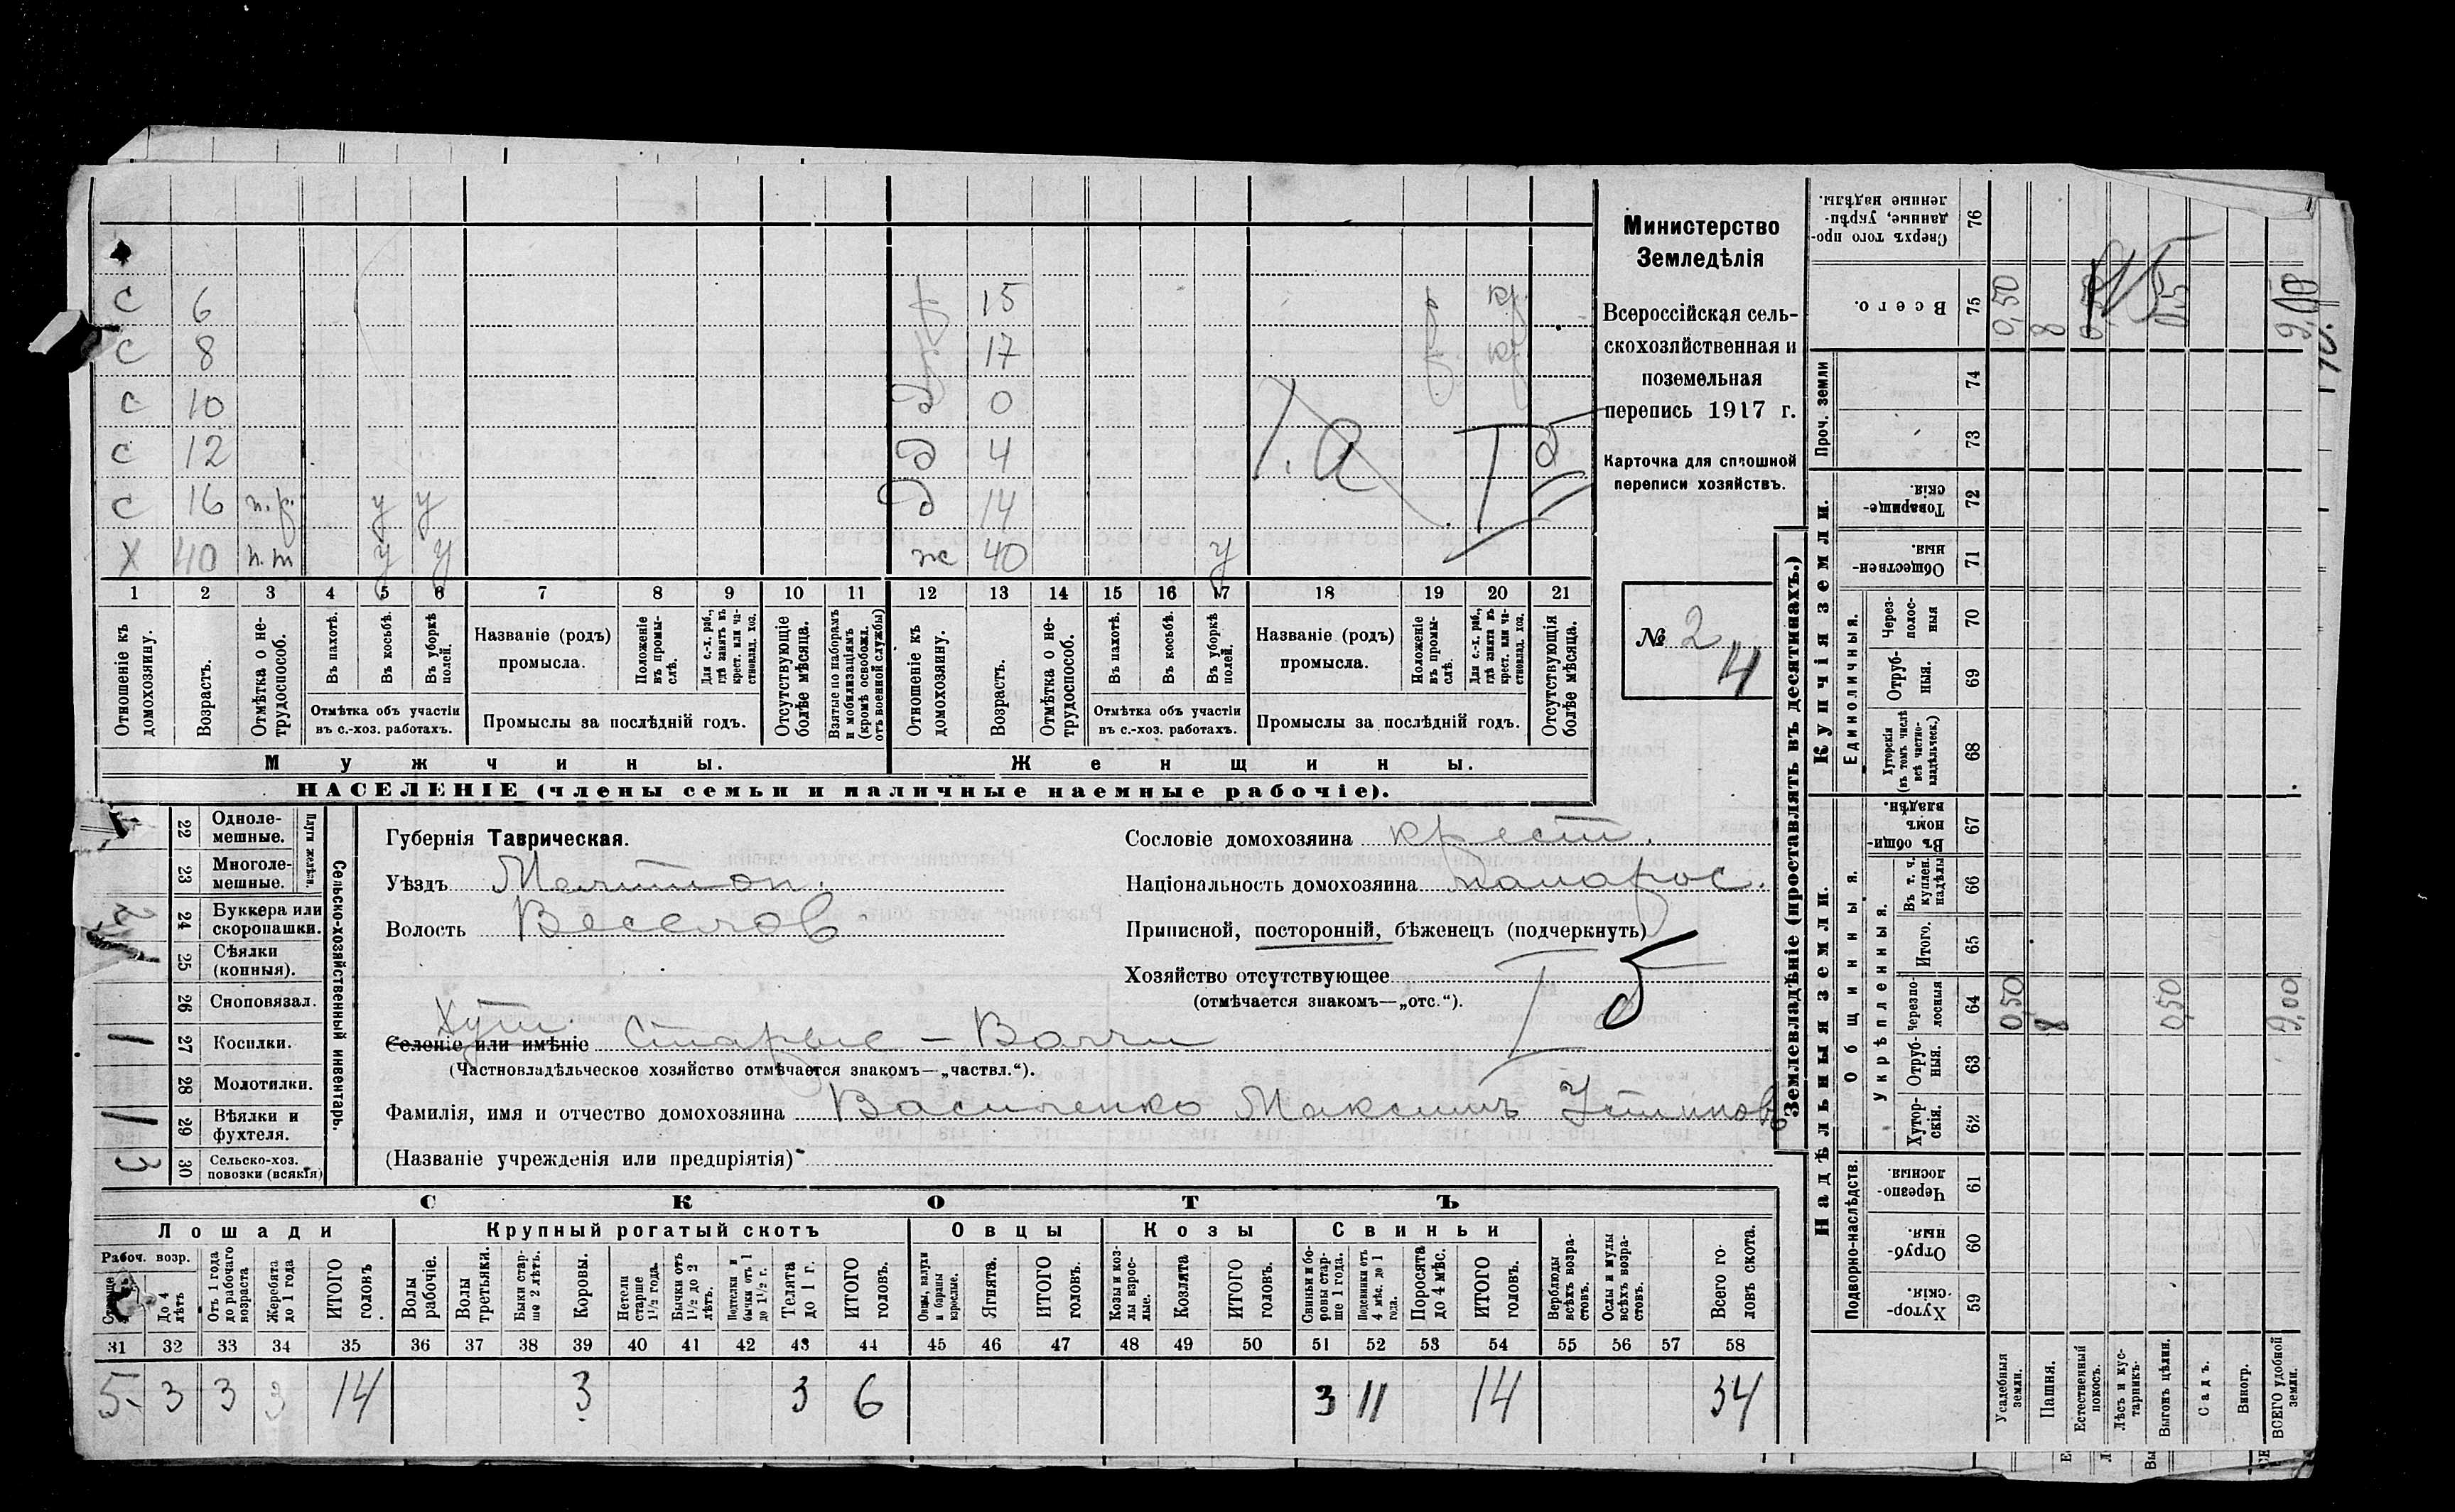 с 6 ф 15 ф кр.
с 8 ф 17 ф. кр
с 10 д 0
с 12 д 4
с 16 п.р. у у д 14
х 40 п.т у у ж 40 у
1 2 3 4 5 6 7 8 9 10 11 12 13 14 15 16 17 18 19 20 21
Отношеніе къ домохозяину.
Возрастъ.
Отмѣтка о не-
трудоспособ.
Въ пахотѣ.
Въ косьбѣ.
Въ уборкѣ
полей.
Отмѣтка объ участіи
въ с.-хоз. работахъ.
Названіе (родъ)
промысла.
Положеніе
въ промы-
слѣ.
Для с.-х. раб.,
гдѣ занятъ въ
крест. или ча-
стновлад. хоз.
Промыслы за послѣдній годъ.
Отсутствующіе
болѣе мѣсяца.
Взятые по наборамъ
и мобилизаціямъ
(кромѣ освобожд.
отъ военной службы)
Отношеніе къ
домохозяину.
Возрастъ.
Отмѣтка о не-
трудоспособ.
Въ пахотѣ.
Въ косьбѣ.
Въ уборкѣ
полей.
Отмѣтка объ участіи
въ с.-хоз. работахъ.
Названіе (родъ)
промысла.
Положеніе
въ промы-
слѣ.
Для с.-х. раб.,
гдѣ занята въ
крест. или ча-
стновлад. хоз.
Промыслы за послѣдній годъ.
Отсутствующія
болѣе мѣсяца.
Мужчины.
Женщины.
НАСЕЛЕНІЕ (члены семьи и наличные наемные рабочіе).
Министерство
Земледѣлія
Всероссійская сель-
скохозяйственная и
поземельная
перепись 1917 г.
Карточка для сплошной
переписи хозяйствъ.
№ 2
4
22 Одноле-
мешные.
23 Многоле-
мешные.
Плуги желѣзн.
24 Буккера или
скоропашки.
25 Сѣялки
(конныя).
26 Сноповязал.
1 27 Косилки.
28 Молотилки.
1 29 Вѣялки и
фухтеля.
3 30 Сельско-хоз.
повозки (всякія)
Сельско-хозяйственный инвентарь.
Губернія Таврическая.
Уѣздъ Мелитоп.
Волость Веселов
Хут.
Селеніе или имѣніе Старые –
(Частновладѣльческое хозяйство отмѣчается знакомъ—„частвл.“).
Фамилія, имя и отчество домохозяина Василенко Максимъ Устинов
(Названіе учрежденія или предпріятія)
Сословіе домохозяина крест.
Національность домохозяина малорос.
Приписной, посторонній, бѣженецъ (подчеркнуть)
Хозяйство отсутствующее
(отмѣчается знакомъ—„отс.“).
I б
СКОТЪ
Лошади
Крупный рогатый скотъ
Овцы
Козы
Свиньи
Рабоч. возр.
До 4
лѣтъ
Отъ 1 года
до рабочаго
возраста
Жеребята
до 1 года
ИТОГО
головъ
Волы
рабочіе.
Волы
третьяки.
Быки стар-
ше 2 лѣтъ.
Коровы.
Нетели
старше
1½ года.
Бычки отъ
1½ до 2
лѣтъ.
Подтелки и
бычки отъ 1
до 1½ г.
Телята
до 1 г.
ИТОГО
головъ.
Овцы, валухи
и бараны
взрослые.
Ягнята.
ИТОГО
головъ.
Козы и коз-
лы взрос-
лые.
Козлята
ИТОГО
головъ.
Свиньи и бо-
ровы стар-
ше 1 года.
Подсвинки отъ
4 мѣс. до 1
года.
Поросята
до 4 мѣс.
ИТОГО
головъ.
Верблюды
всѣхъ возра-
стовъ.
Ослы и мулы
всѣхъ возра-
стовъ.
Всего го-
ловъ скота.
31 32 33 34 35 36 37 38 39 40 41 42 43 44 45 46 47 48 49 50 51 52 53 54 55 56 57 58
5 3 3 3 14 3 3 6 3 11 14 34
Землевладѣніе (проставлять въ десятинахъ.)
Надѣльныя земли.
Купчія земли.
Проч. земли
Подворно-наслѣдств.
Общинныя.
Укрѣпленныя.
Единоличныя.
Сверхъ того про-
данные, укрѣп-
ленные надѣлы.
76
Всего.
75 0,50 8 9,00
74
73
Товарище-
скія.
72
Обществен-
ныя.
71
Через-
полос-
ныя
70
Отруб-
ныя.
69
Хуторскія
(въ томъ числѣ
всѣ частно-
владѣльческ.)
68
Въ общин-
номъ
владѣн.
67
Въ т. ч.
куплен.
надѣлы
66
Итого.
65
Черезпо-
лосныя
64 0,50 8 0,50 9,00
Отруб-
ныя.
63
Хутор-
скія.
62
Черезпо-
лосныя.
61
Отруб-
ныя.
60
Хутор-
скія.
59
Усадебныя
земли.
Пашня.
Естественный
покосъ.
Лѣсъ и кус-
тарникъ.
Выгонъ цѣлин.
Садъ.
Виногр.
ВСЕГО удобной
земли.